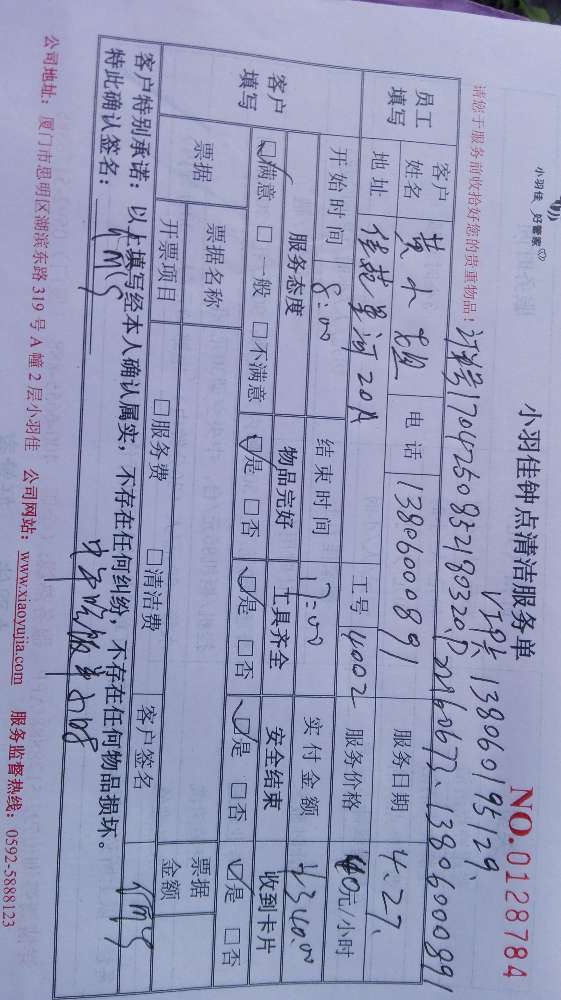 小羽佳 好管家
小羽佳钟点清洁服务单
NO.0128784
VIP卡13806019529、
请您于服务前收拾好您的贵重物品！
员工填写 客户姓名 黄小姐 电话 13806000891 服务日期 4.27.
地址 佳苑星河20A 工号 4002 服务价格 40元/小时
客户填写 开始时间 8:00 结束时间 17:00 实付金额
服务态度 物品完好 工具齐全 安全结束 收到卡片
☑满意 □一般 □不满意 ☑是 □否 ☑是 □否 ☑是 □否 ☑是 □否
票据 票据名称 票据金额
开票项目 □服务费 □清洁费 客户签名
客户特别承诺：以上填写经本人确认属实，不存在任何纠纷，不存在任何物品损坏。
特此确认签名：
公司地址：厦门市思明区湖滨东路319号A幢2层小羽佳 公司网站：www.xiaoyujia.com 服务监督热线：0592-5888123